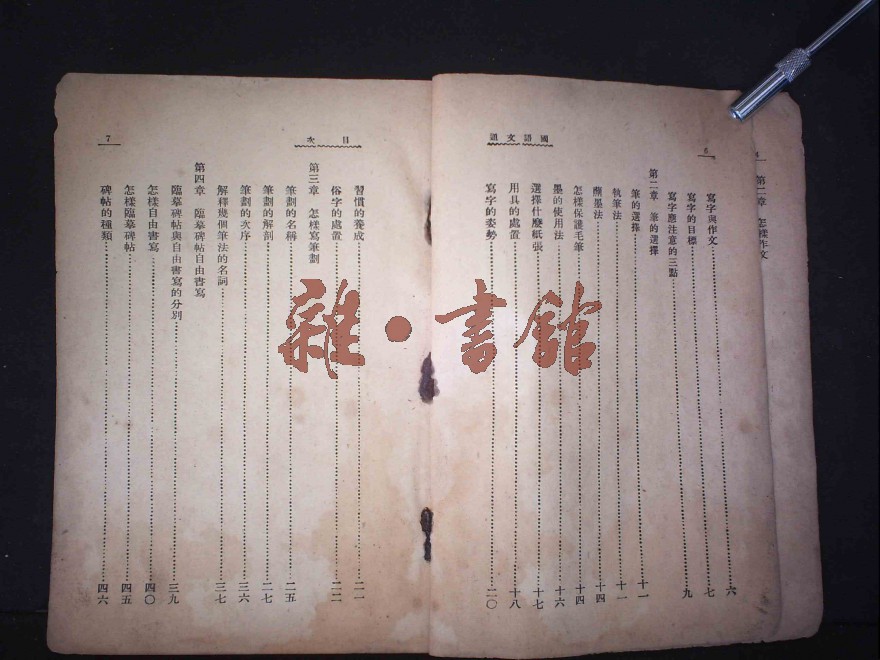 第二章 怎樣作文
國語文題
6
寫字與作文 六
寫字的目標 七
寫字應注意的三點 九
第二章 筆的選擇
筆的選擇 十一
執筆法 十一
蘸墨法 十四
怎樣保護毛筆 十四
墨的使用法 十六
選擇什麼紙張 十七
用具的處置 十八
寫字的姿勢 二〇
目次
7
習慣的養成 二一
俗字的處置 二二
第三章 怎樣寫筆劃
筆劃的名稱 二五
筆劃的解剖 二七
筆劃的次序 三六
解釋幾個筆法的名詞 三七
第四章 臨摹碑帖自由書寫
臨摹碑帖與自由書寫的分別 三九
怎樣自由書寫 四〇
怎樣臨摹碑帖 四五
碑帖的種類 四六
雜·書館